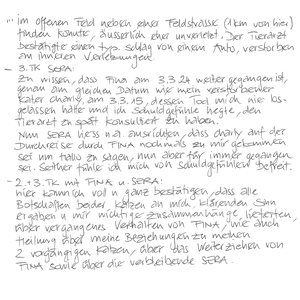 ... im offenen Feld neben einer Feldstrasse (1km von hier)
finden konnte, äusserlich eher unverletzt. Der Tierarzt
bestätigte einen typ. schlag von einem Auto, verstorben
an inneren Verletzungen.
- 3. TK SERA:
zu wissen, dass Fina am 3.3.24 weiter gegangen ist,
genau am gleichen Datum wie mein verstorbener
Kater Charly am 3.3.15, dessen Tod mich nie los-
gelassen hatte und ich Schuldgefühle hegte, den
Tierarzt zu spät konsultiert zu haben.
Nun SERA liess n.a. ausrichten, dass Charly auf der
Durchreise durch FINA nochmals zu mir gekommen
sei um Hallo zu sagen, nun aber für immer gegangen
sei. Seither fühle ich mich von Schuldgefühlen befreit.
- 2. + 3. TK mit FINA u. SERA:
hier kann ich voll u ganz bestätigen, dass alle
Botschaften beider Katzen an mich, klärenden Sinn
ergaben u mir wichtige Zusammenhänge, lieferten,
über vergangenes Verhalten von FINA, wie auch
Heilung über meine Beziehungen zu meinen
2 vorgängigen Katzen, über das Weiterziehen von
FINA sowie über die verbleibende SERA.